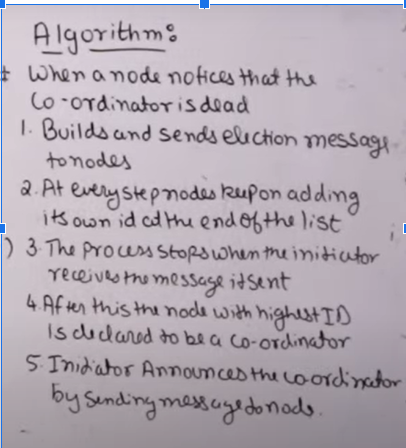 Algorithm:
* When a node notices that the
Co-ordinator is dead
1. Builds and sends election message
to nodes
2. At every step nodes keep on adding
its own id at the end of the list
) 3. The process stops when the initiator
receives the message it sent
4. After this the node with highest ID
is declared to be a co-ordinator
5. Initiator Announces the coordinator
by sending message to node.